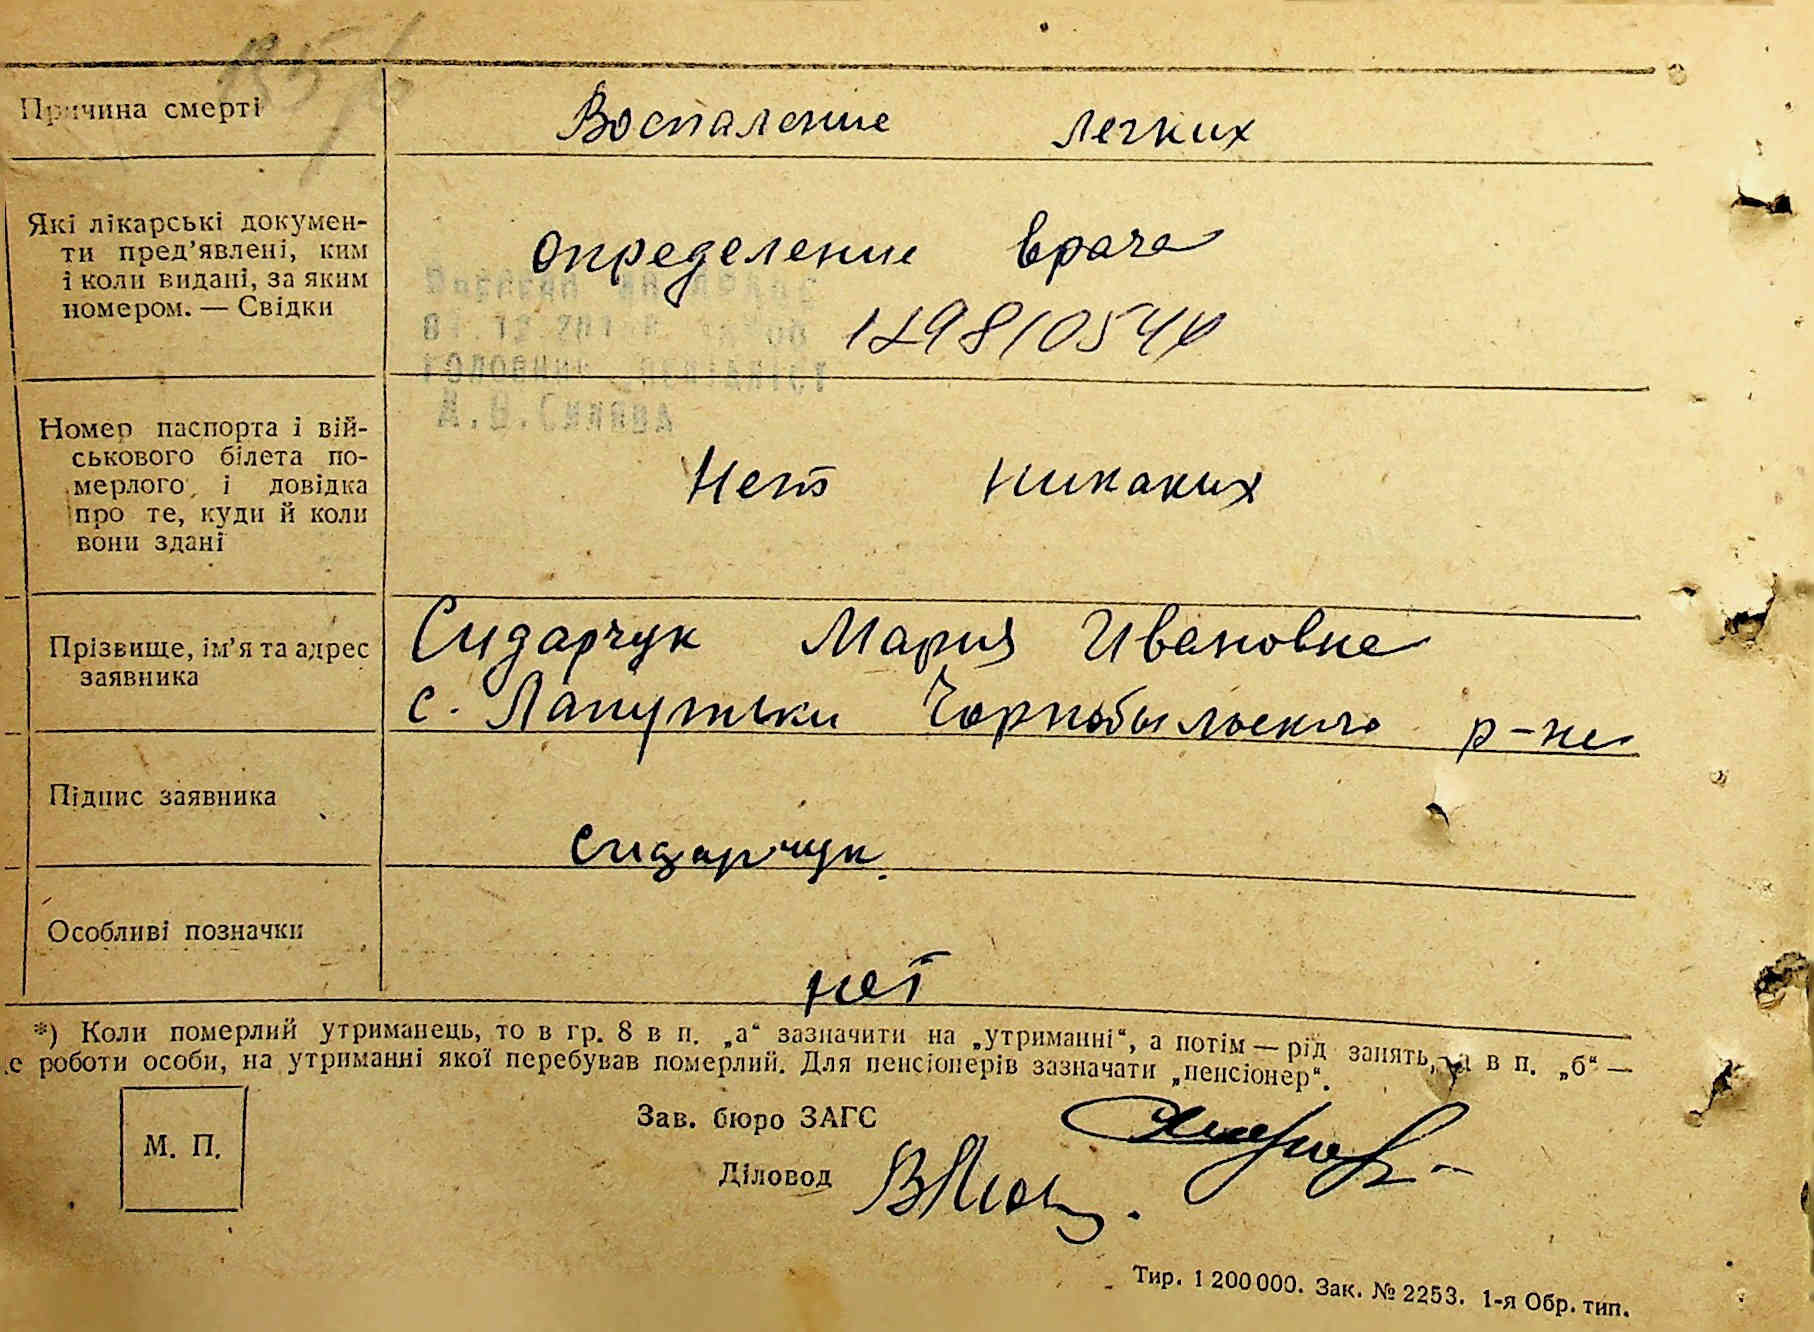 Причина смерті
Воспаление легких
Які лікарські докумен-
ти пред'явлені, ким
і коли видані, за яким
номером. — Свідки
определение врача
Номер паспорта і вій-
ськового білета по-
мерлого, і довідка
про те, куди й коли
вони здані
Нет никаких
Прізвище, ім'я та адрес
заявника
Сидарчук Мария Ивановна
с. Лапутьки Чорнобыльского р-на
Підпис заявника
Сидарчук.
Особливі позначки
нет
*) Коли померлий утриманець, то в гр. 8 в п. „а“ зазначити на „утриманні“, а потім — рід занять, а в п. „б“ —
е роботи особи, на утриманні якої перебував померлий. Для пенсіонерів зазначати „пенсіонер“.
М. П.
Зав. бюро ЗАГС
Діловод
Тир. 1 200 000. Зак. № 2253. 1-я Обр. тип.